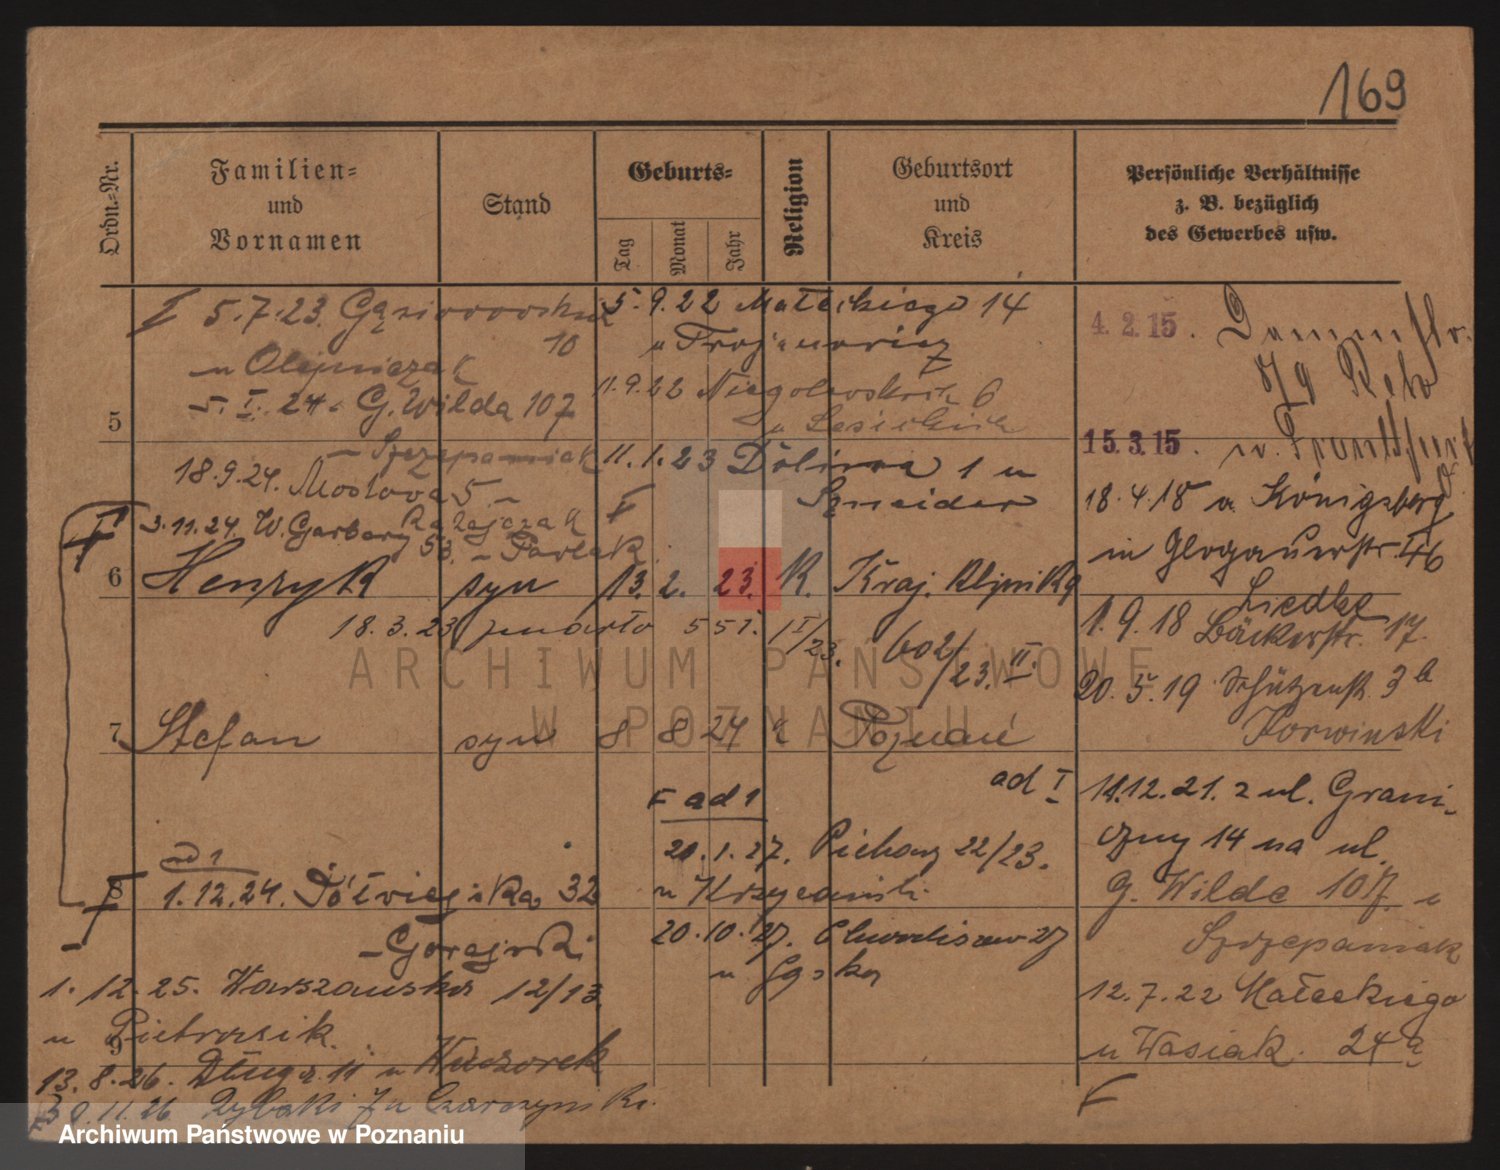 169
Ordn.-Nr.
Familien-
und
Vornamen
Stand
Geburts-
Tag
Monat
Jahr
Religion
Geburtsort
und
Kreis
Persönliche Verhältnisse
z. B. bezüglich
des Gewerbes usw.
I 5.7.23. Gąsiorowskich
10
u Olejniczak
5. I. 24. G. Wilda 107
5
– Szczepaniak
18.9.24. Mostowa 5 –
Ratajczak
3.11.24. W. Garbary 53. – Pawlak
5.9.22 Małeckiego 14
u Trojanowicz
11.9.22 Niegolewskich 6
u Lesickich
11.1.23 Dolina 1 u
Szneider
6 Henryk syn 13. 2. 23. K. Kraj.
18.3.23 zmarło 551. I/23. 602/23. II.
7 Stefan syn 8 8 24 k Poznań
ad I
F ad 1
21.1.27. Piekary 22/23.
u Krzycański
20.10.27. Chwaliszewo 27
u Gąska
ad 1
8
1.12.24. Półwiejska 32
– Gorajski
1.12.25. Warszawska 12/13.
u Pietrasik.
9
13.8.26. Długa 11 u Wieczorek
30.11.26 Rybaki 7 u
4.2.15.
15.3.15.
18.4.18 a. Königsberg
in Glogauerstr. 46
Liedtke
1.9.18 Bäckerstr. 17.
20.5.19 Schützenstr. 3b
Korwinski
14.12.21. z ul. Grani-
czny 14 na ul.
G. Wilda 107 u
Szczepaniak
12.7.22 Małeckiego
u Wasiak. 24a
F
ARCHIWUM PAŃSTWOWE
W POZNANIU
Archiwum Państwowe w Poznaniu